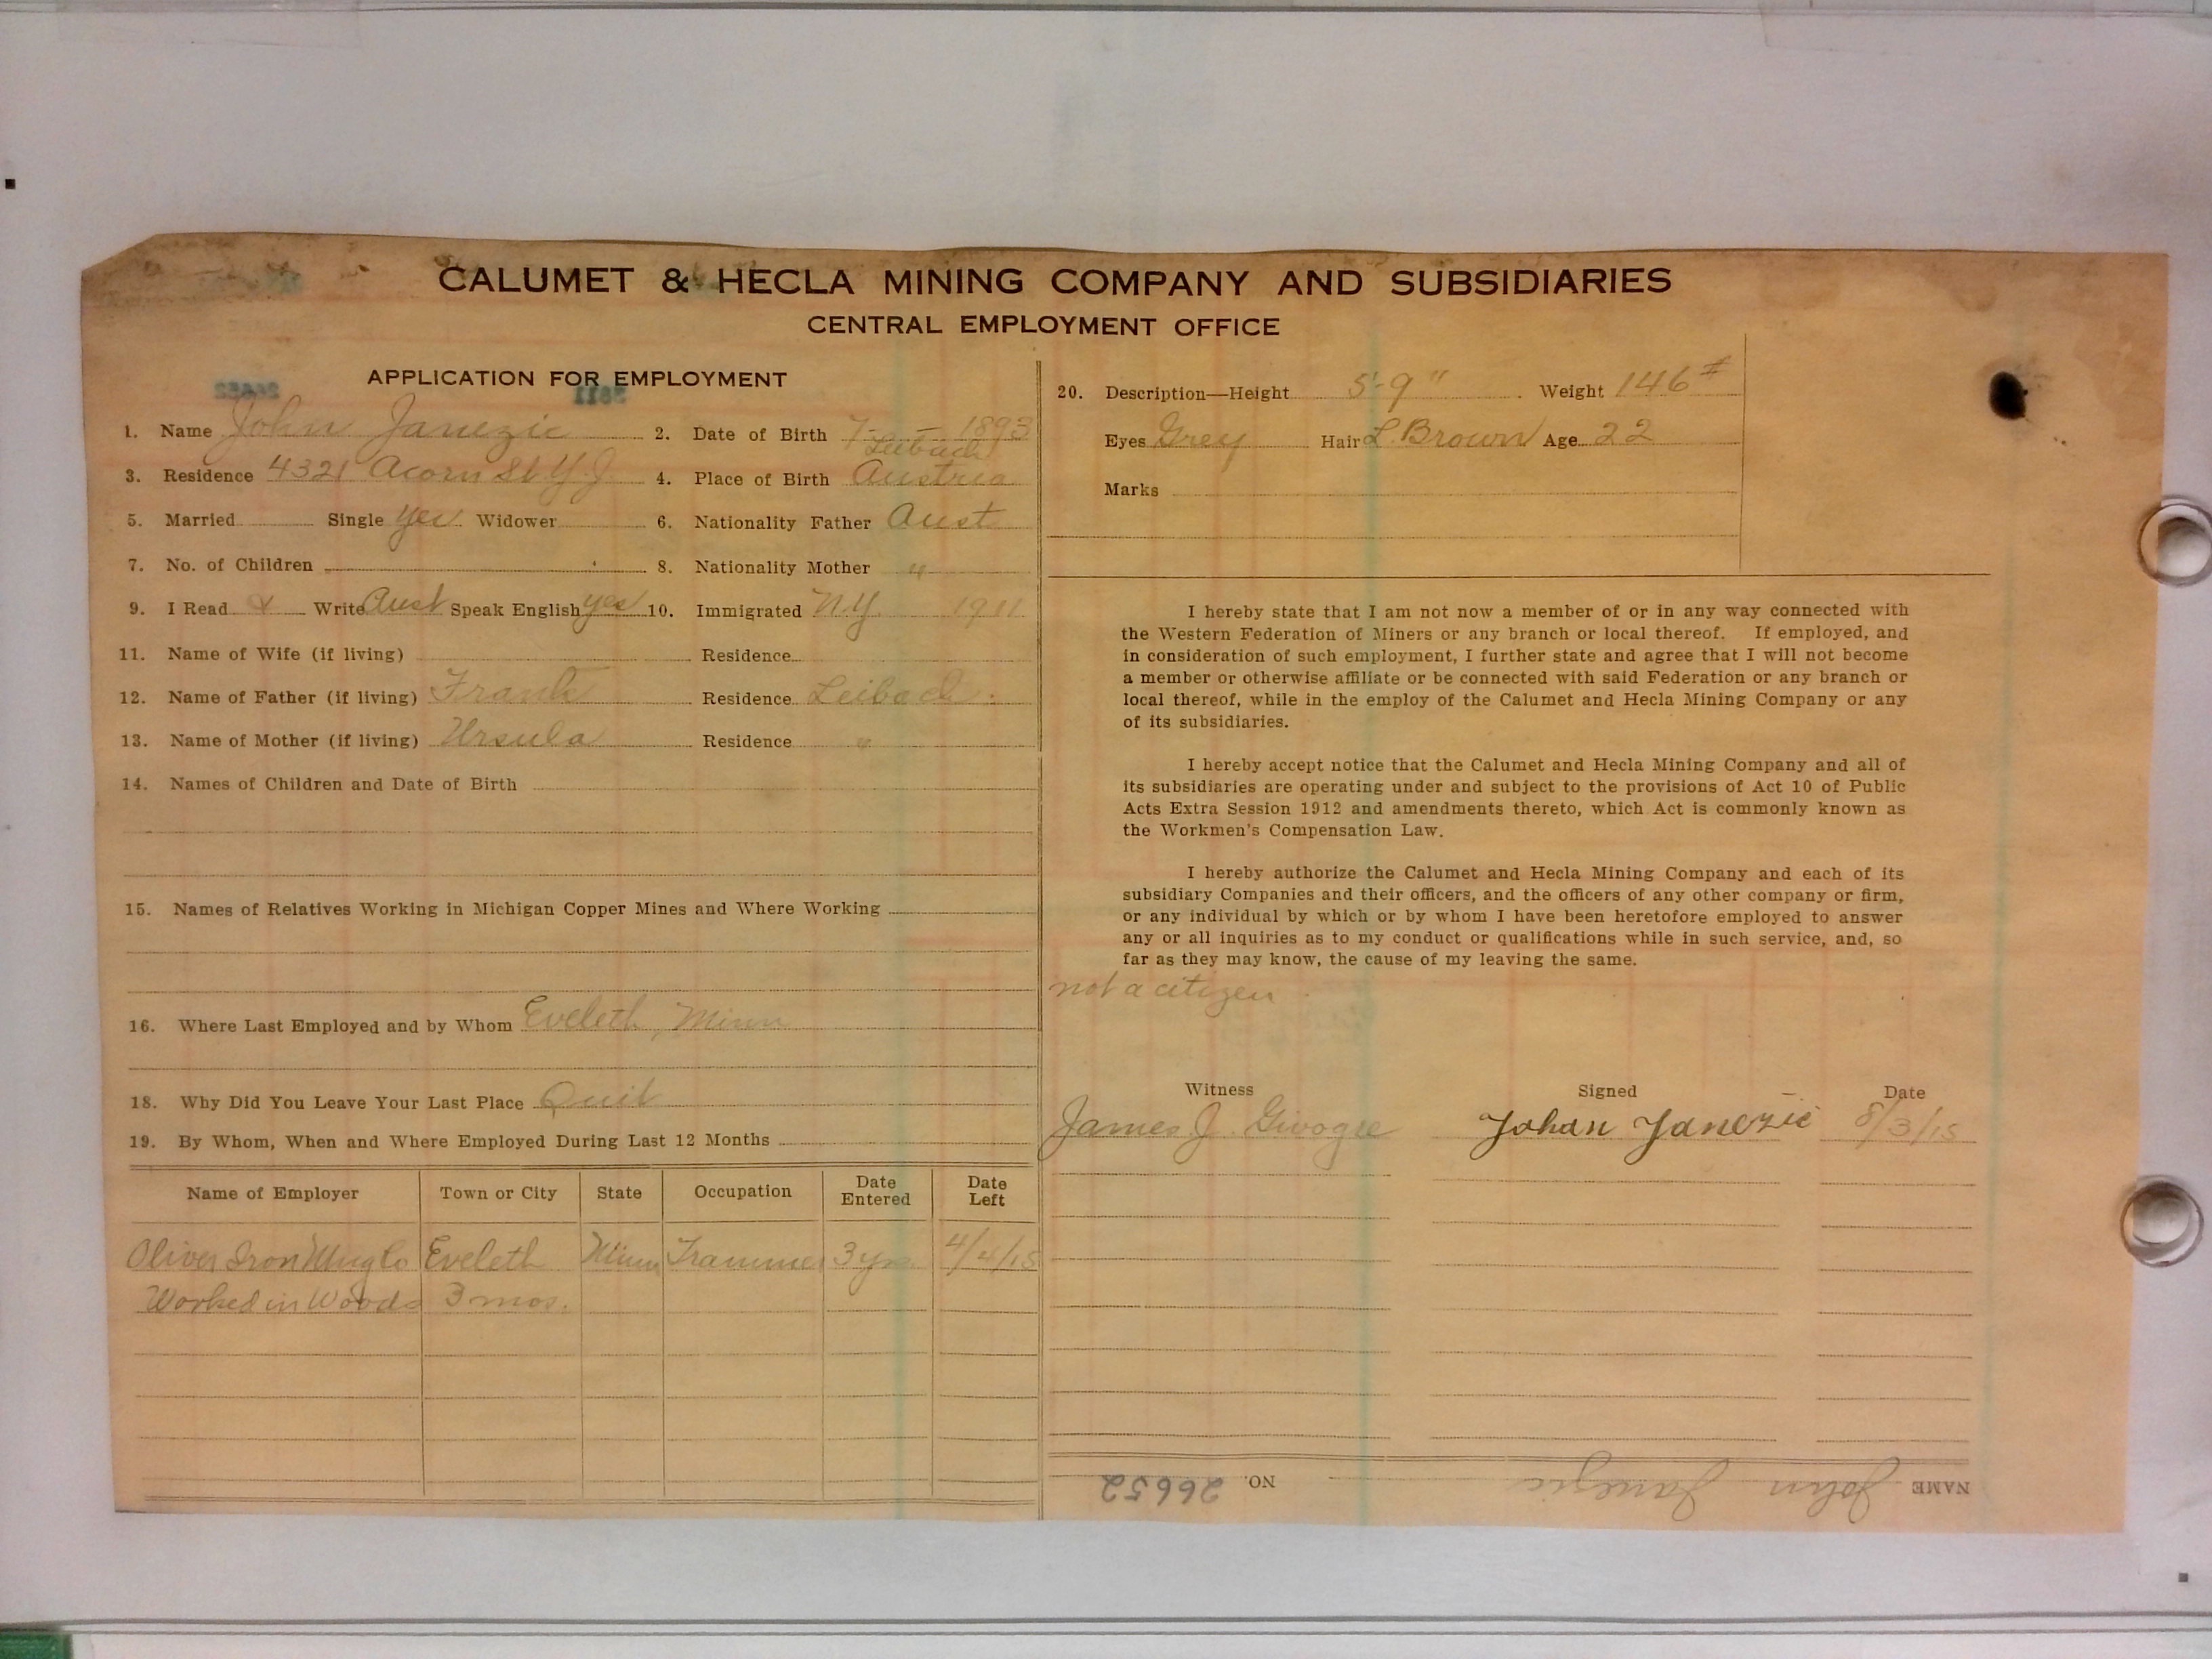 CALUMET & HECLA MINING COMPANY AND SUBSIDIARIES
CENTRAL EMPLOYMENT OFFICE
APPLICATION FOR EMPLOYMENT
1. Name John Janezic 2. Date of Birth 7 - - 1893
Leibach
3. Residence 4321 Acorn St. Y.J. 4. Place of Birth Austria
5. Married Single yes Widower 6. Nationality Father Aust
7. No. of Children 8. Nationality Mother "
9. I Read & Write Aust Speak English yes 10. Immigrated N.Y. 1911
11. Name of Wife (if living) Residence
12. Name of Father (if living) Frank Residence Leibach
13. Name of Mother (if living) Ursula Residence "
14. Names of Children and Date of Birth
15. Names of Relatives Working in Michigan Copper Mines and Where Working
16. Where Last Employed and by Whom Eveleth, Minn
18. Why Did You Leave Your Last Place Quit
19. By Whom, When and Where Employed During Last 12 Months
Name of Employer Town or City State Occupation Date Entered Date Left
Oliver Iron Mng Co Eveleth Minn Trammer 3 yrs 4/4/15
Worked in Woods 3 mos.
20. Description—Height 5'-9" Weight 146#
Eyes Grey Hair L. Brown Age 22
Marks
I hereby state that I am not now a member of or in any way connected with
the Western Federation of Miners or any branch or local thereof. If employed, and
in consideration of such employment, I further state and agree that I will not become
a member or otherwise affiliate or be connected with said Federation or any branch or
local thereof, while in the employ of the Calumet and Hecla Mining Company or any
of its subsidiaries.
I hereby accept notice that the Calumet and Hecla Mining Company and all of
its subsidiaries are operating under and subject to the provisions of Act 10 of Public
Acts Extra Session 1912 and amendments thereto, which Act is commonly known as
the Workmen's Compensation Law.
I hereby authorize the Calumet and Hecla Mining Company and each of its
subsidiary Companies and their officers, and the officers of any other company or firm,
or any individual by which or by whom I have been heretofore employed to answer
any or all inquiries as to my conduct or qualifications while in such service, and, so
far as they may know, the cause of my leaving the same.
not a citizen
Witness Signed Date
James J. Johan Janezic 8/3/15
NAME John Janezic NO. 26652